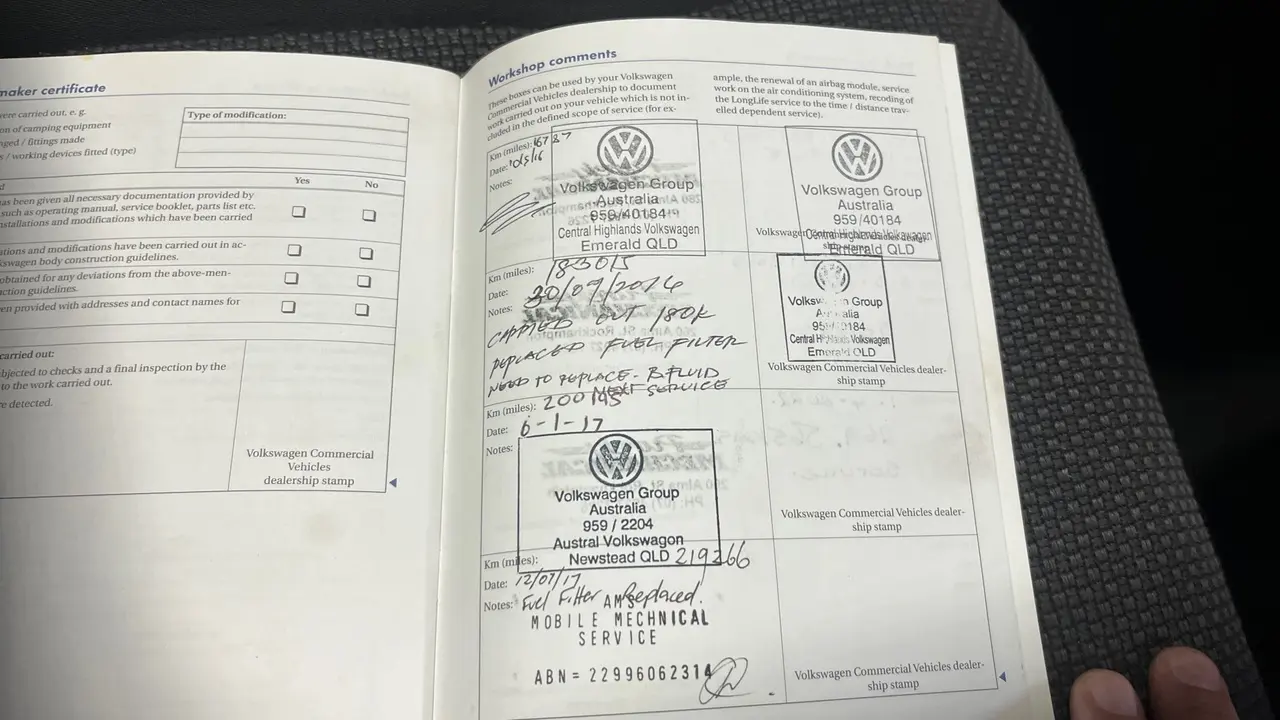 maker certificate
were carried out, e. g.
on of camping equipment
nged / fittings made
s / working devices fitted (type)
Type of modification:
Yes
No
has been given all necessary documentation provided by
such as operating manual, service booklet, parts list etc.
nstallations and modifications which have been carried
ations and modifications have been carried out in ac-
kswagen body construction guidelines.
obtained for any deviations from the above-men-
ction guidelines.
en provided with addresses and contact names for
carried out:
bjected to checks and a final inspection by the
to the work carried out.
e detected.
Volkswagen Commercial
Vehicles
dealership stamp
Workshop comments
These boxes can be used by your Volkswagen
Commercial Vehicles dealership to document
work carried out on your vehicle which is not in-
cluded in the defined scope of service (for ex-
ample, the renewal of an airbag module, service
work on the air conditioning system, recoding of
the LongLife service to the time / distance trav-
elled dependent service).
Km (miles):
Date:
Notes:
Volkswagen Group
Australia
959/40184
Central Highlands Volkswagen
Emerald QLD
Volkswagen Group
Australia
959/40184
Central Highlands Volkswagen
Emerald QLD
Km (miles): 183015
Date: 30/09/2016
Notes:
CARRIED OUT 180K
REPLACED FUEL FILTER
NEED TO REPLACE B.FLUID
NEXT SERVICE
Volkswagen Group
Australia
Central Highlands Volkswagen
Emerald QLD
Volkswagen Commercial Vehicles dealer-
ship stamp
Km (miles):
Date: 6-1-17
Notes:
Volkswagen Group
Australia
959 / 2204
Austral Volkswagon
Newstead QLD
Volkswagen Commercial Vehicles dealer-
ship stamp
Km (miles): 219266
Date: 12/07/17
Notes: Fuel Filter Replaced.
AMS
MOBILE MECHNICAL
SERVICE
ABN = 22996062314
Volkswagen Commercial Vehicles dealer-
ship stamp